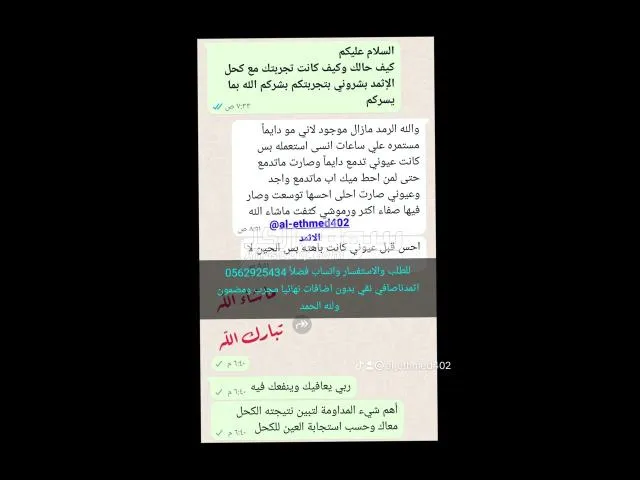 السلام عليكم
كيف حالك وكيف كانت تجربتك مع كحل
الإثمد بشروني بتجربتكم بشركم الله بما
يسركم
٧:٣٣ ص
والله الرمد مازال موجود لاني مو دايماً
مستمره علي ساعات انسى استعمله بس
كانت عيوني تدمع دايماً وصارت ماتدمع
حتى لمن احط ميك اب ماتدمع واجد
وعيوني صارت احلى احسها توسعت وصار
فيها صفاء اكثر ورموشي كثفت ماشاء الله
@al-ethmed402
الاثمد
احس قبل عيوني كانت باهته بس الحين لا
للطلب والاستفسار واتساب فضلاً 0562925434
اثمدناصافي نقي بدون اضافات نهائيا مجرب ومضمون
ولله الحمد
ماشاء الله
تبارك الله
@al-ethmed402
٦:٤٠ م
ربي يعافيك وينفعك فيه
٦:٤٠ م
أهم شيء المداومة لتبين نتيجته الكحل
معاك وحسب استجابة العين للكحل
٦:٤٠ م